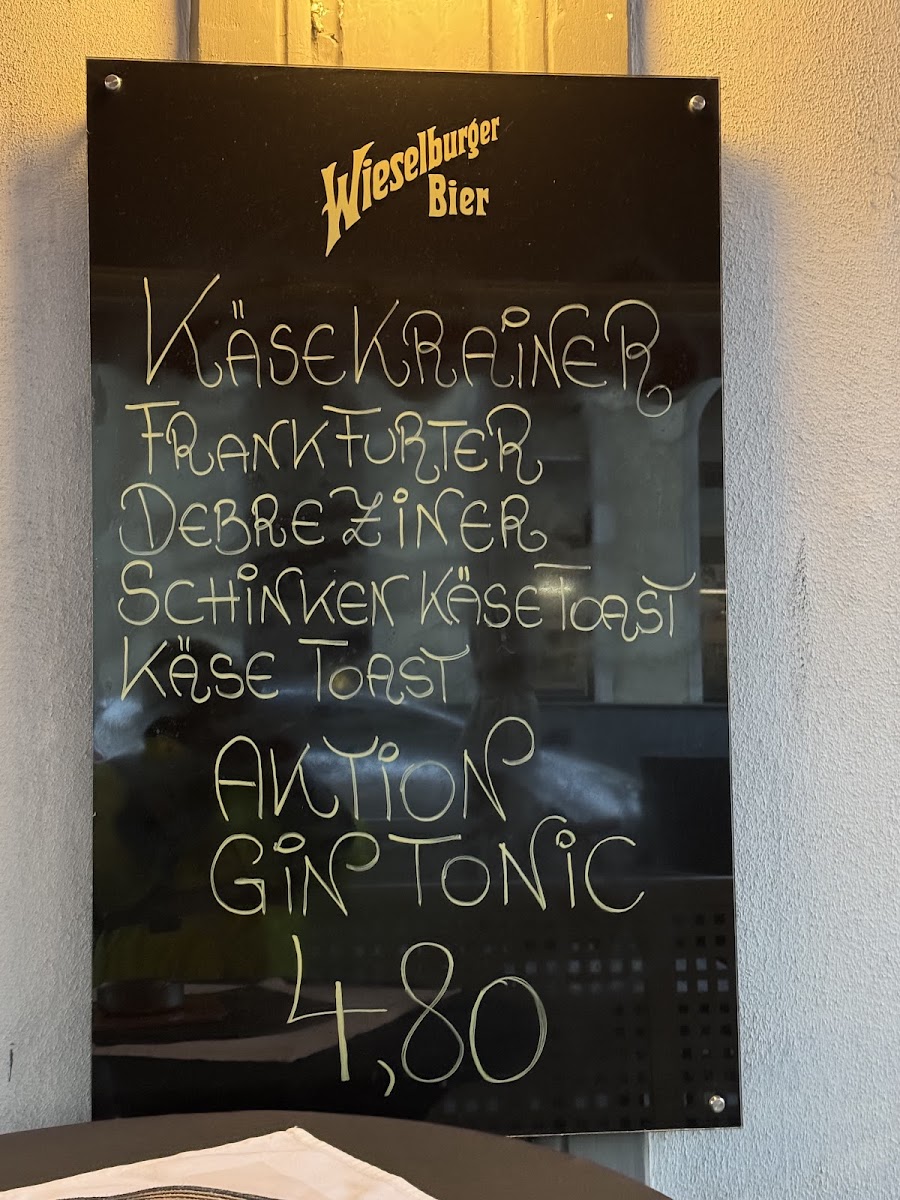 Wieselburger
Bier
KÄSEKRAINER
FRANKFURTER
DEBREZINER
SCHINKEN KÄSETOAST
KÄSE TOAST
AKTION
GIN TONIC
4,80